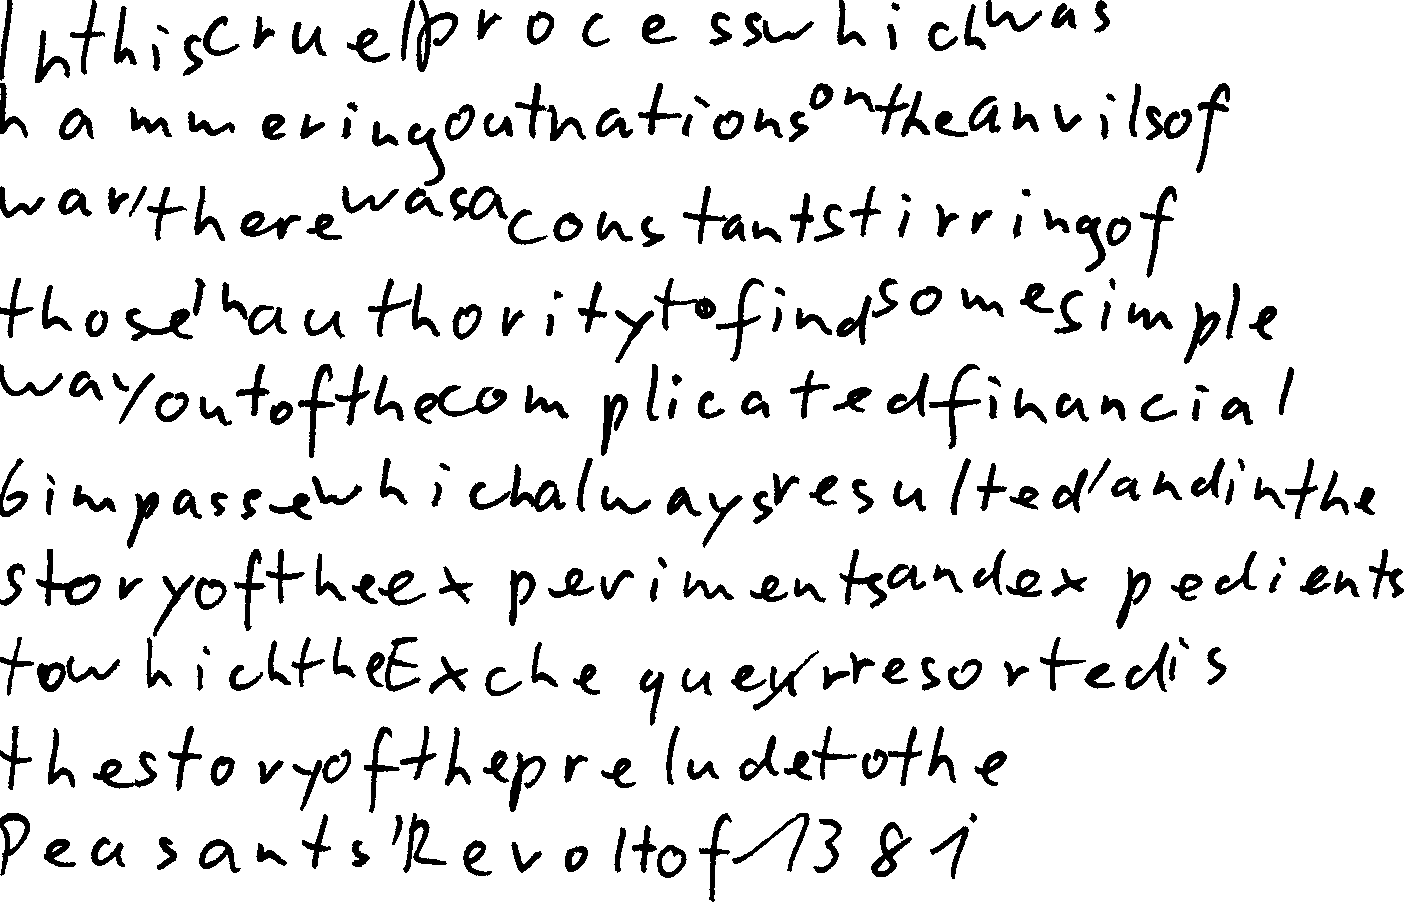 In this cruel process which was
hammering out nations on the anvils of
war, there was a constant stirring of
those in authority to find some simple
way out of the complicated financial
impasse which always resulted, and in the
story of the experiments and expedients
to which the Exchequer resorted is
the story of the prelude to the
Peasants' Revolt of 1381